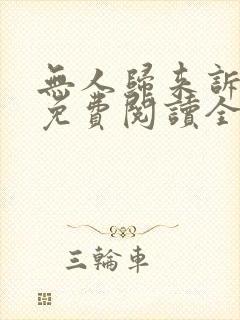 無人歸來訴
免費閱讀全
三輪車